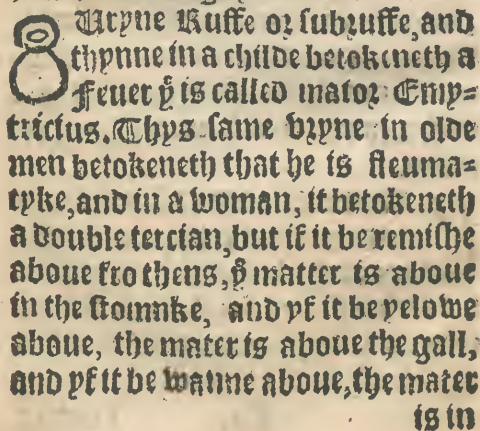 8 Uryne Ruffe or subruffe, and
thynne in a childe betokeneth a
Feuer yͤ is called maior Emp=
tricius. Thys same vryne in olde
men betokeneth that he is fleuma=
tyke, and in a woman, it betokeneth
a double tercian, but if it be remisshe
aboue fro thens, yͤ matter is aboue
in the stomnke, and yf it be yelowe
aboue, the mater is aboue the gall,
and yf it be wanne aboue, the mater
is in